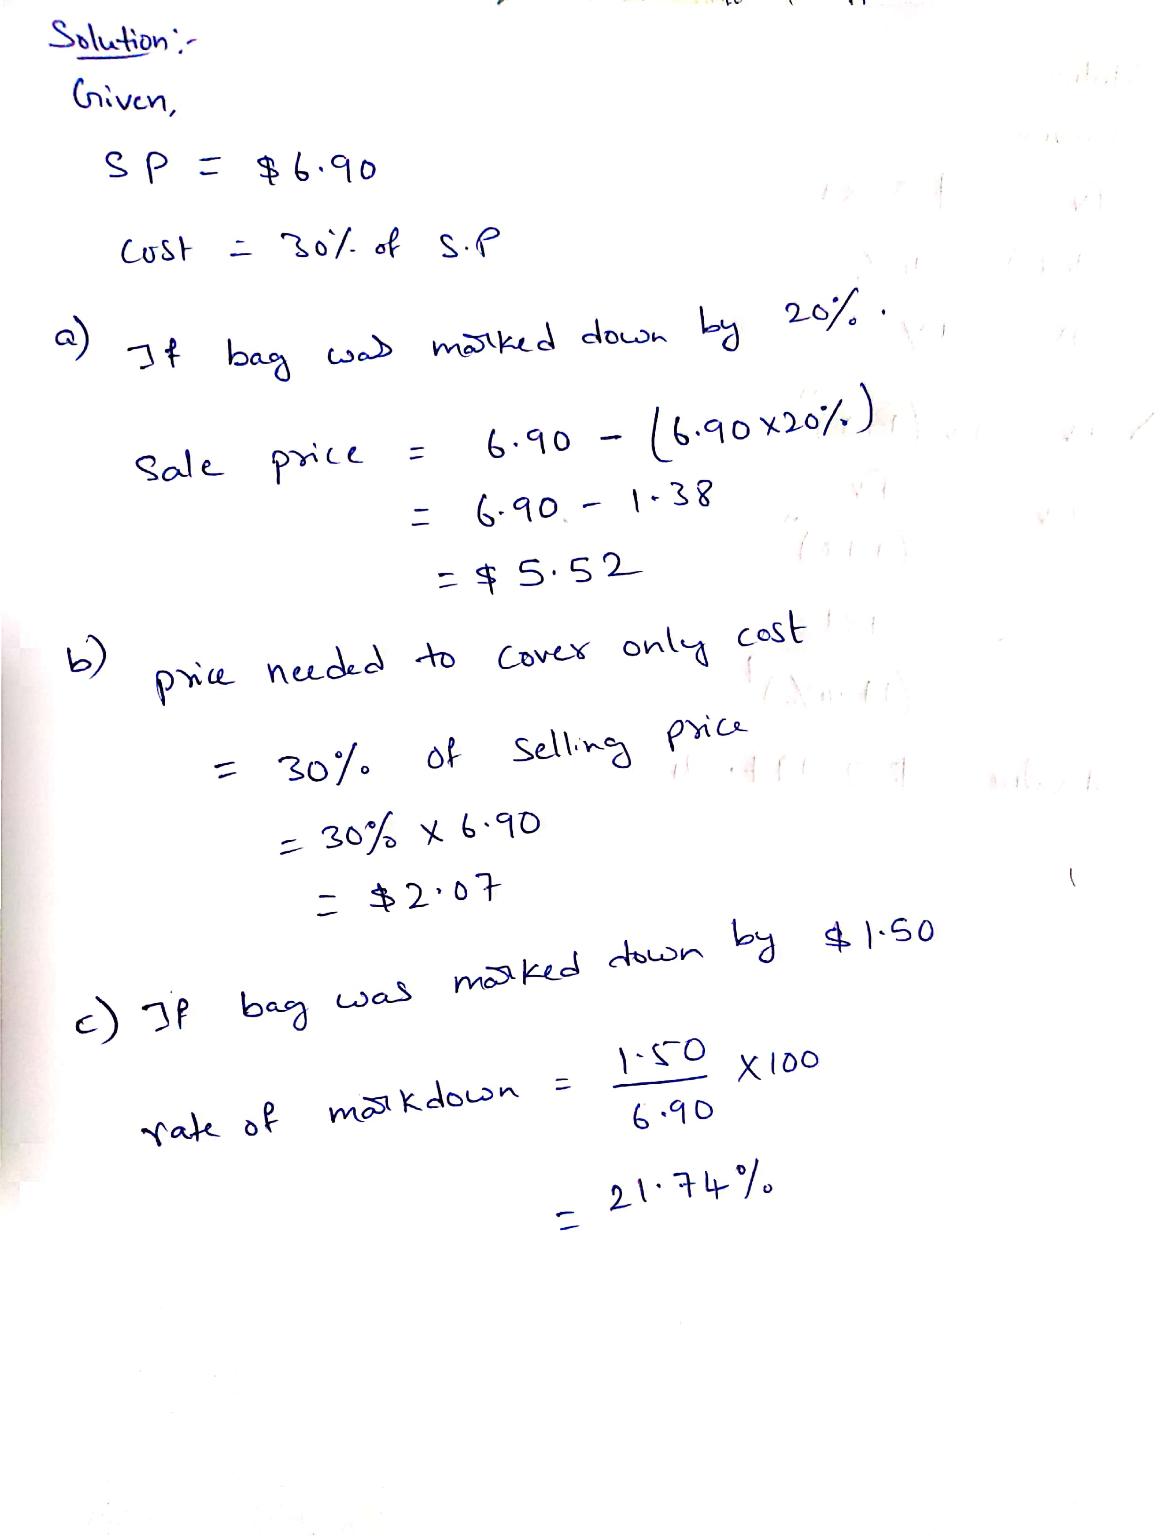 Solution :-
Given,
SP = $6.90
Cost = 30% of S.P
a) If bag was marked down by 20%.
Sale price = 6.90 - (6.90 x 20%)
= 6.90 - 1.38
= $5.52
b) price needed to cover only cost
= 30% of Selling price
= 30% x 6.90
= $2.07
c) If bag was marked down by $1.50
rate of markdown = 1.50/6.90 x 100
= 21.74%